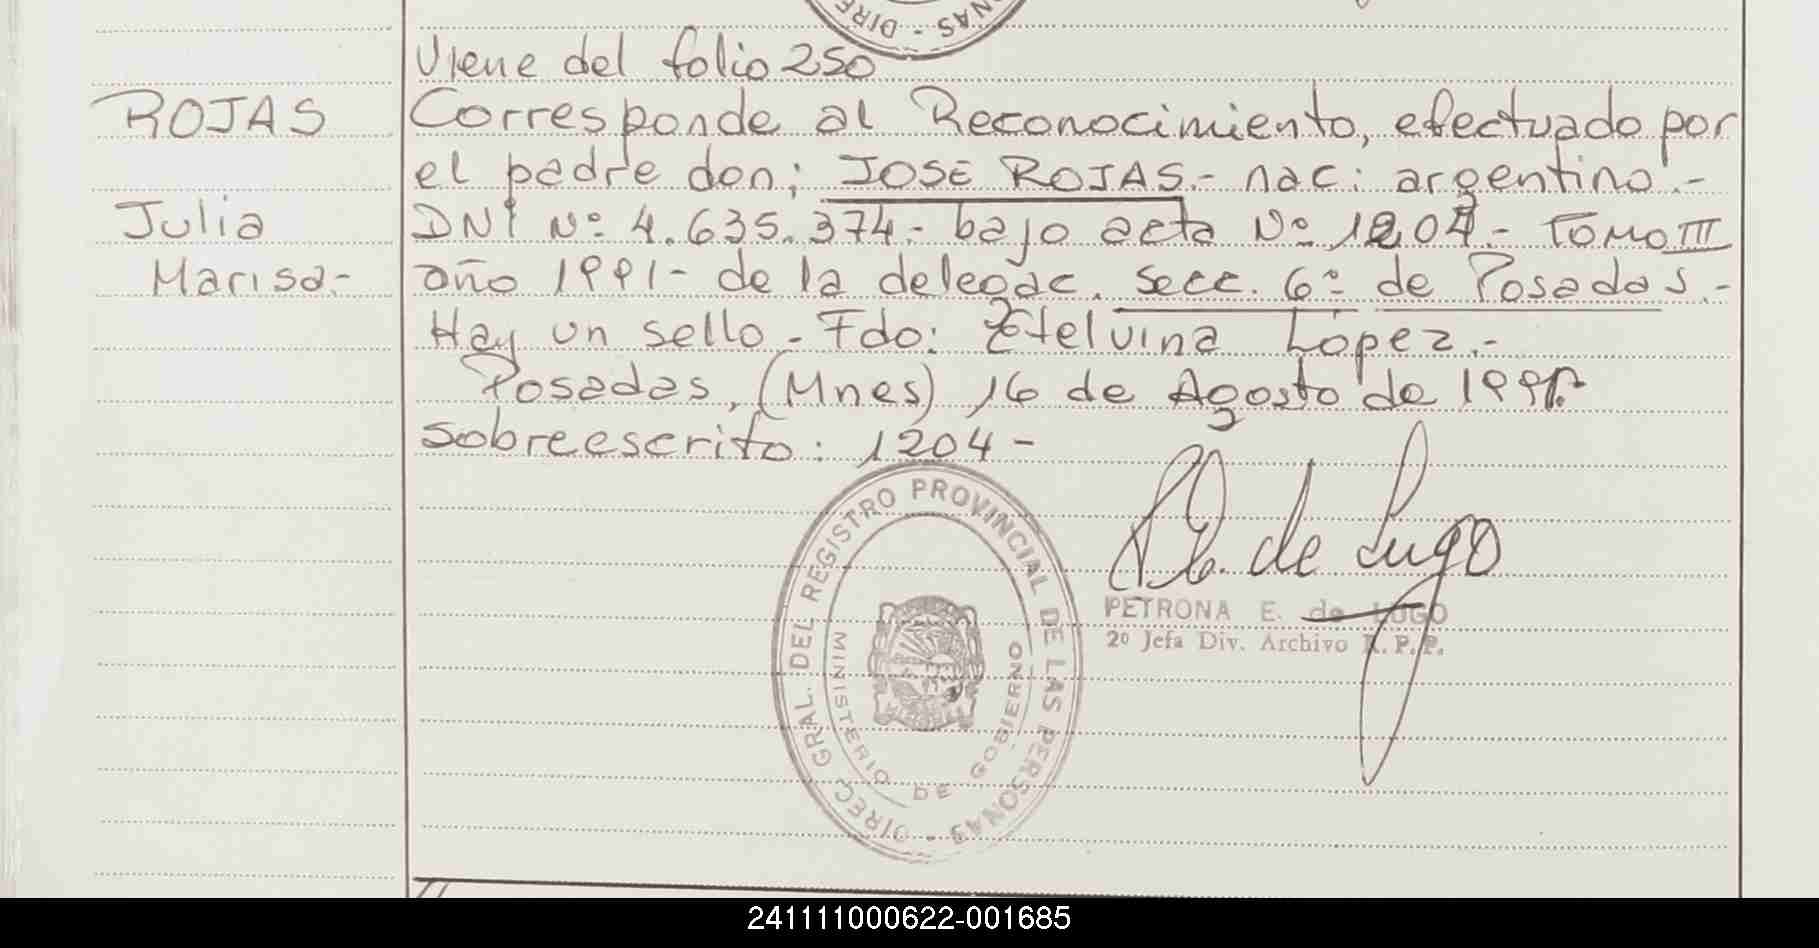 DIREC
NAS -
Viene del folio 250
ROJAS
Corresponde al Reconocimiento, efectuado por
el padre don; JOSE ROJAS.- nac: argentino.-
Julia
DNI Nº 4.635.374.- bajo acta Nº 1204.- Tomo III
Marisa.-
año 1991- de la delegac. Secc. 6º de Posadas.-
Hay un sello. Fdo: Etelvina López.-
Posadas, (Mnes) 16 de Agosto de 1991.
Sobreescrito: 1204-
DIREC. GRAL. DEL REGISTRO PROVINCIAL DE LAS PERSONAS -
MINISTERIO DE GOBIERNO
MISIONES
E. de Lugo
PETRONA E. de LUGO
2º Jefa Div. Archivo R.P.P.
241111000622-001685